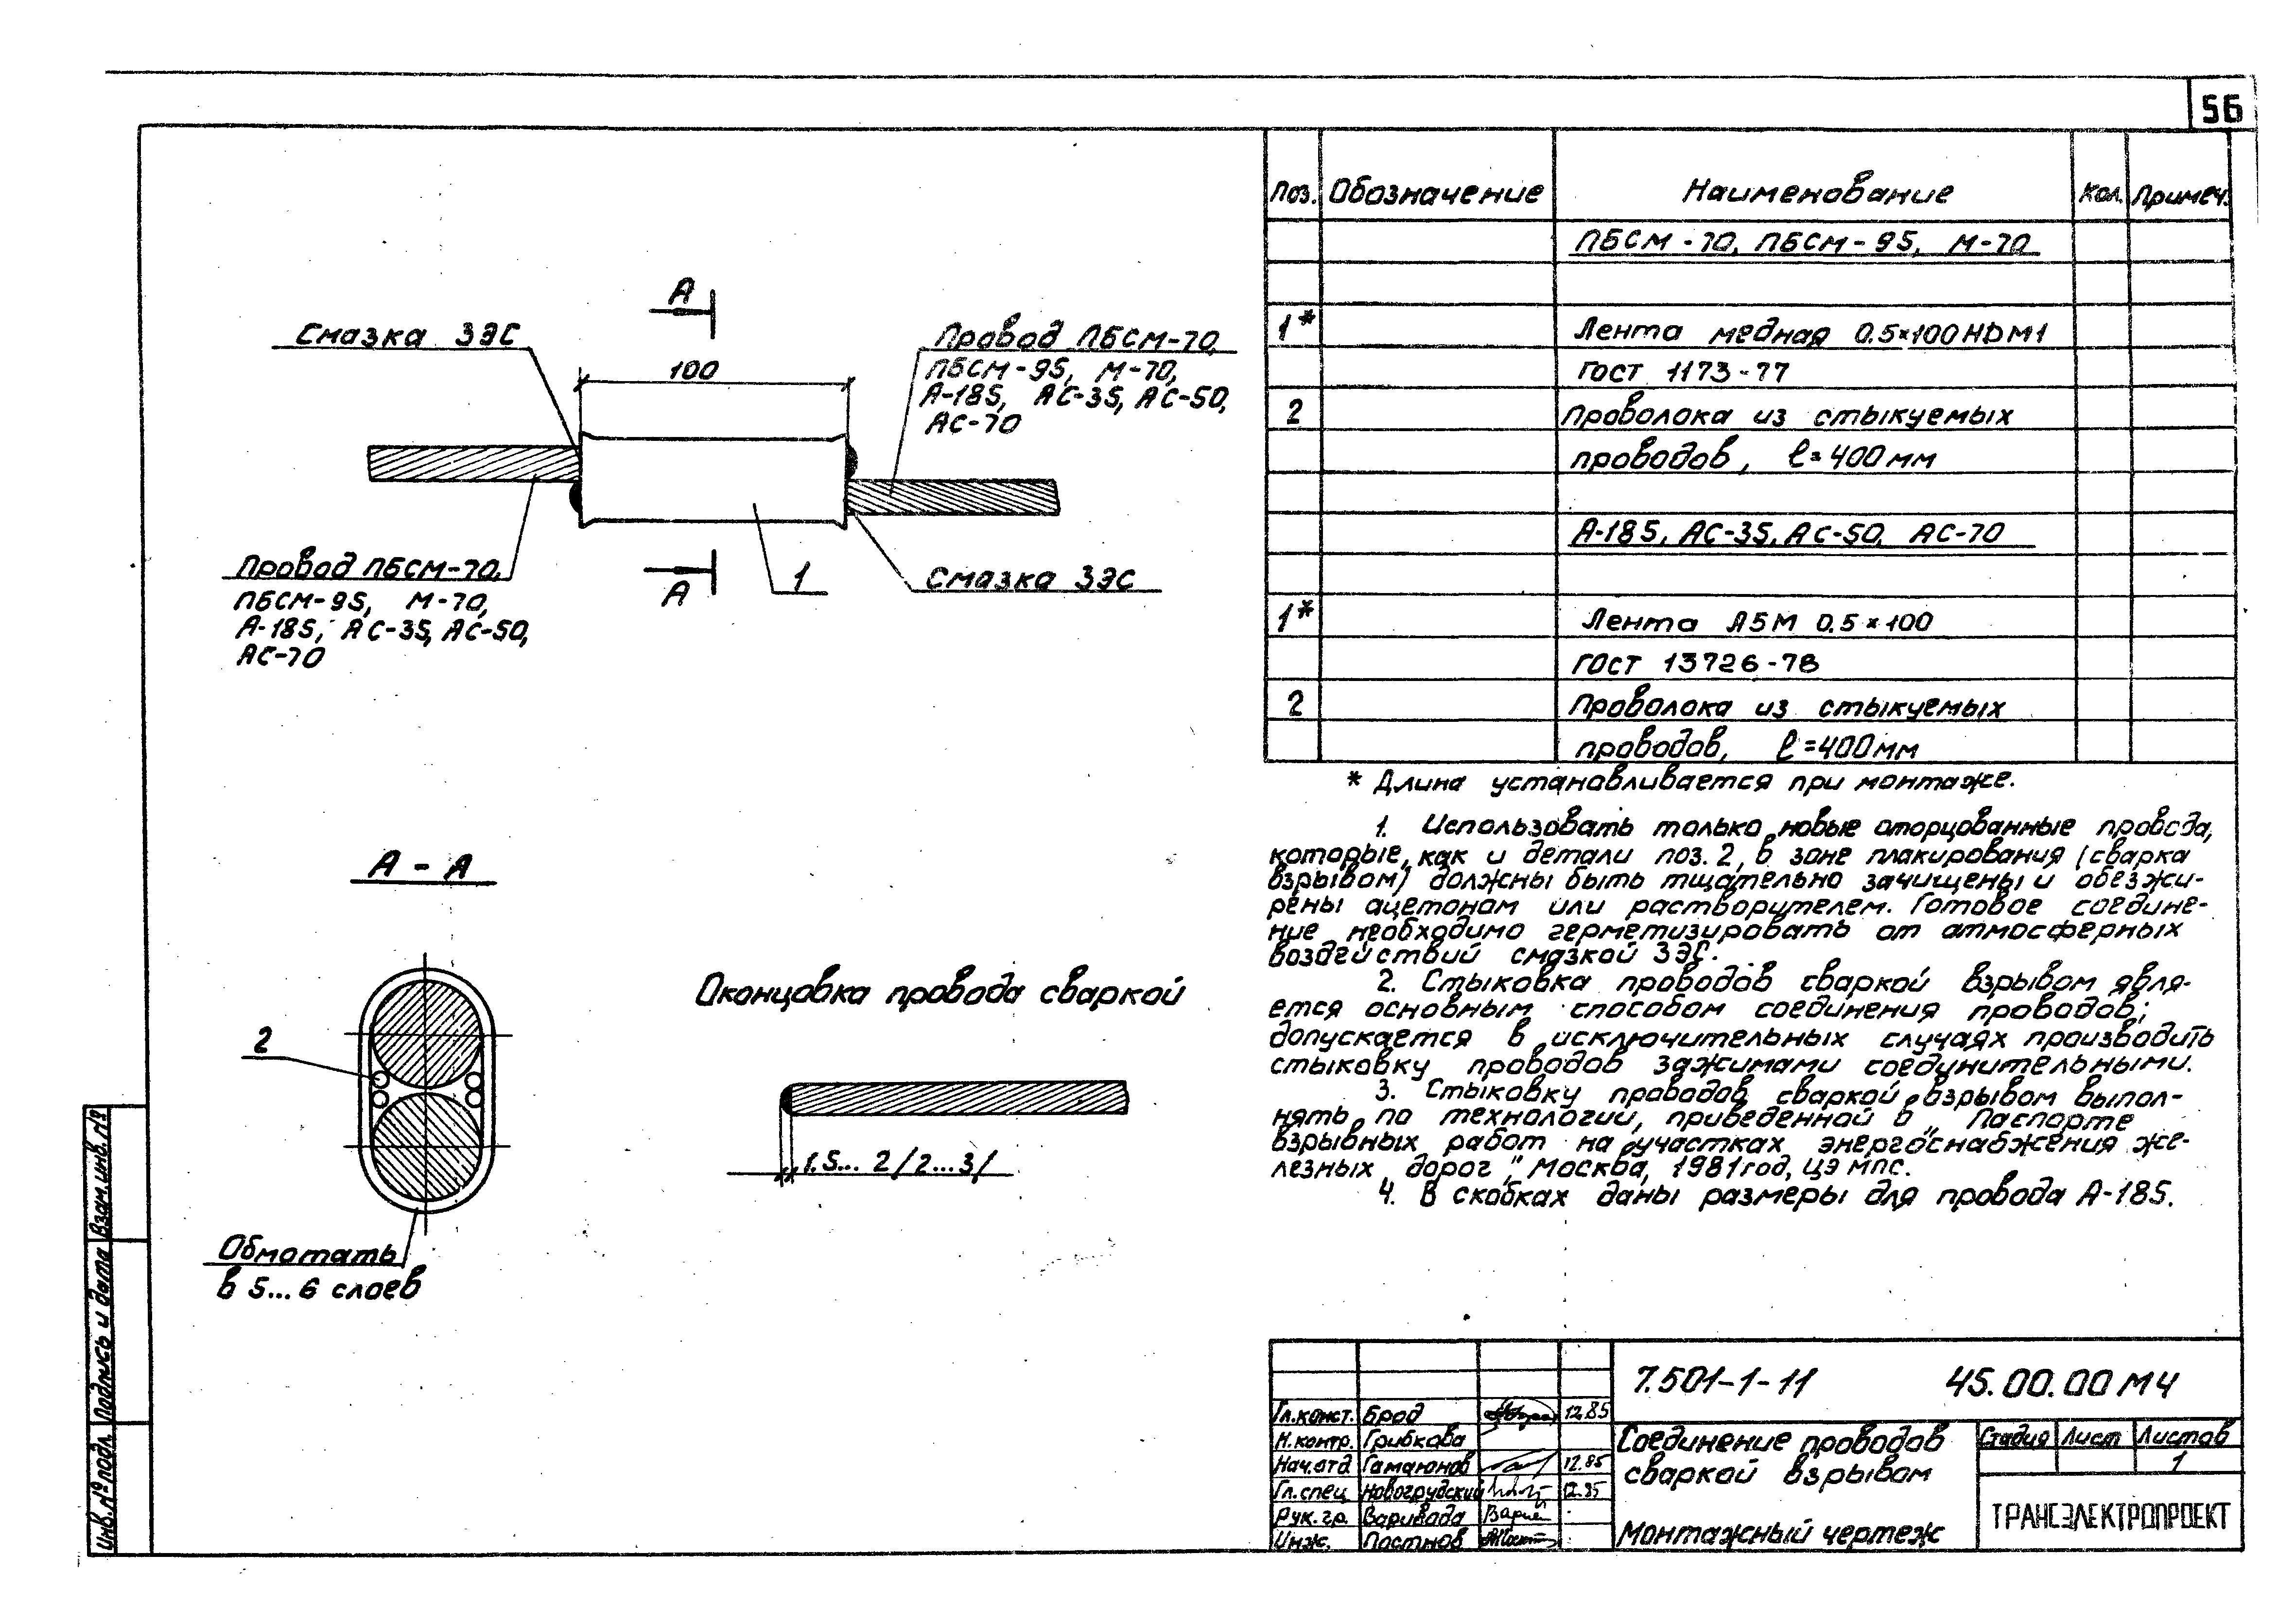 56
А
Смазка ЗЭС
100
Провод ПБСМ-70,
ПБСМ-95, М-70,
А-185, АС-35, АС-50,
АС-70
Провод ПБСМ-70,
ПБСМ-95, М-70,
А-185, АС-35, АС-50,
АС-70
А
1
Смазка ЗЭС
А - А
2
Обмотать
в 5... 6 слоев
Оконцовка провода сваркой
1.5... 2/2...3/
Поз. Обозначение Наименование Кол. Примеч.
ПБСМ-70, ПБСМ-95, М-70
1* Лента медная 0.5×100 НДМ1
ГОСТ 1173-77
2 Проволока из стыкуемых
проводов, ℓ=400мм
А-185, АС-35, АС-50, АС-70
1* Лента А5М 0.5×100
ГОСТ 13726-78
2 Проволока из стыкуемых
проводов, ℓ=400мм
* Длина устанавливается при монтаже.
1. Использовать только новые оторцованные провода,
которые, как и детали поз. 2, в зоне плакирования (сварка
взрывом) должны быть тщательно зачищены и обезжи-
рены ацетоном или растворителем. Готовое соедине-
ние необходимо герметизировать от атмосферных
воздействий смазкой ЗЭС.
2. Стыковка проводов сваркой взрывом явля-
ется основным способом соединения проводов;
допускается в исключительных случаях производить
стыковку проводов зажимами соединительными.
3. Стыковку проводов сваркой взрывом выпол-
нять по технологии, приведенной в „Паспорте
взрывных работ на участках энергоснабжения же-
лезных дорог", Москва, 1981 год, ЦЭ МПС.
4. В скобках даны размеры для провода А-185.
7.501-1-11 45.00.00 МЧ
Гл.конст. Брод 12.85
Н.контр. Грибкова
Нач.отд Гамаюнов 12.85
Гл.спец Новогрудский 12.85
Рук.гр. Варивода
Инж. Постнов
Соединение проводов
сваркой взрывом
Монтажный чертеж
Стадия Лист Листов
1
ТРАНСЭЛЕКТРОПРОЕКТ
Взам.инв.№
Подпись и дата
Инв.№подл.